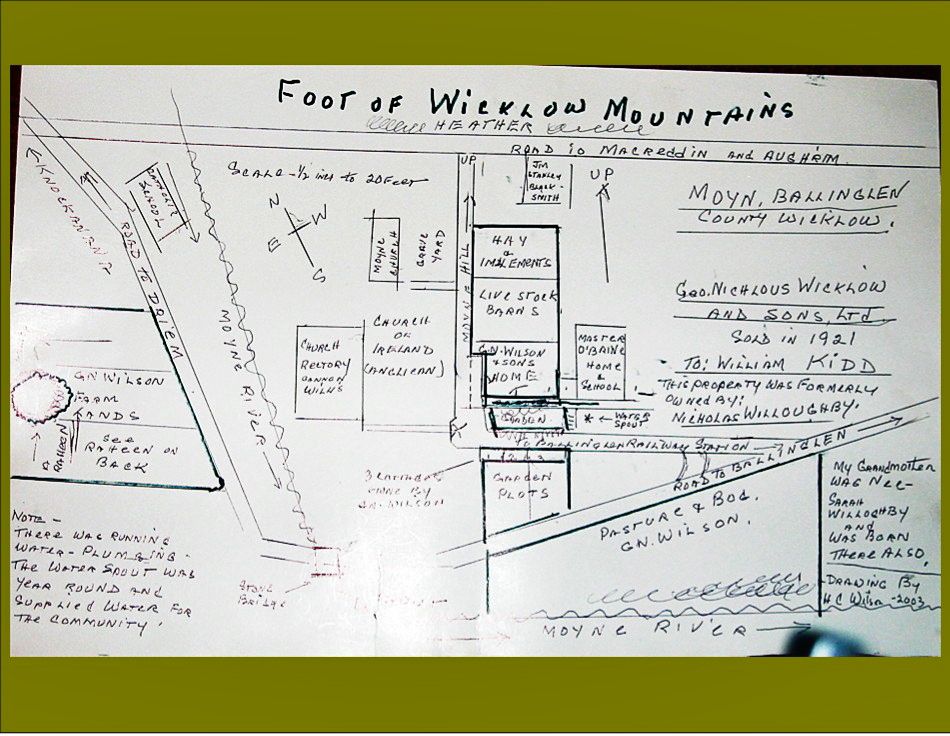 FOOT OF WICKLOW MOUNTAINS
HEATHER
ROAD TO MACREDDIN AND AUGHRIM
SCALE - 1/2 INCH TO 20 FEET
N
W
E
S
KNOCKANANA
ROAD TO DRIEM
CATHOLIC
SCHOOL
MOYNE RIVER
MOYNE
CHURCH
GRAVE
YARD
CHURCH
RECTORY
CANNON
WILNS
CHURCH
OF
IRELAND
(ANGLICAN)
UP
MOYNE HILL
JIM
STANLEY
BLACK-
SMITH
UP
HAY
&
IMPLEMENTS
LIVE STOCK
BARNS
G.N. WILSON
& SONS
HOME
GARDEN
MASTER
O'BAINE
HOME
&
SCHOOL
* ← WATER
SPOUT
TO BALLINGLEN RAILWAY STATION
1 2 & 3
GARDEN
PLOTS
ROAD TO BALLINGLEN
PASTURE & BOG.
GN. WILSON.
MOYNE RIVER
STONE
BRIDGE
3 COTTAGES
OWNE BY
GN. WILSON
GN WILSON
FARM
LANDS
SEE
RAHEEN ON
BACK
RAHEEN
NOTE -
THERE WAS RUNNING
WATER - PLUMGING.
THE WATER SPOUT WAS
YEAR ROUND AND
SUPPLIED WATER FOR
THE COMMUNITY.
MOYN, BALLINGLEN
COUNTY WICKLOW.
GEO. NICHLOUS WICKLOW
AND SONS, LTD.
SOLD IN 1921
TO: WILLIAM KIDD
THIS PROPERTY WAS FORMERLY
OWNED BY:
NICHOLAS WILLOUGHBY.
MY GRANDMOTHER
WAS NEE-
SARAH
WILLOGHBY
AND
WAS BORN
THERE ALSO.
DRAWING BY
H C Wilson - 2003